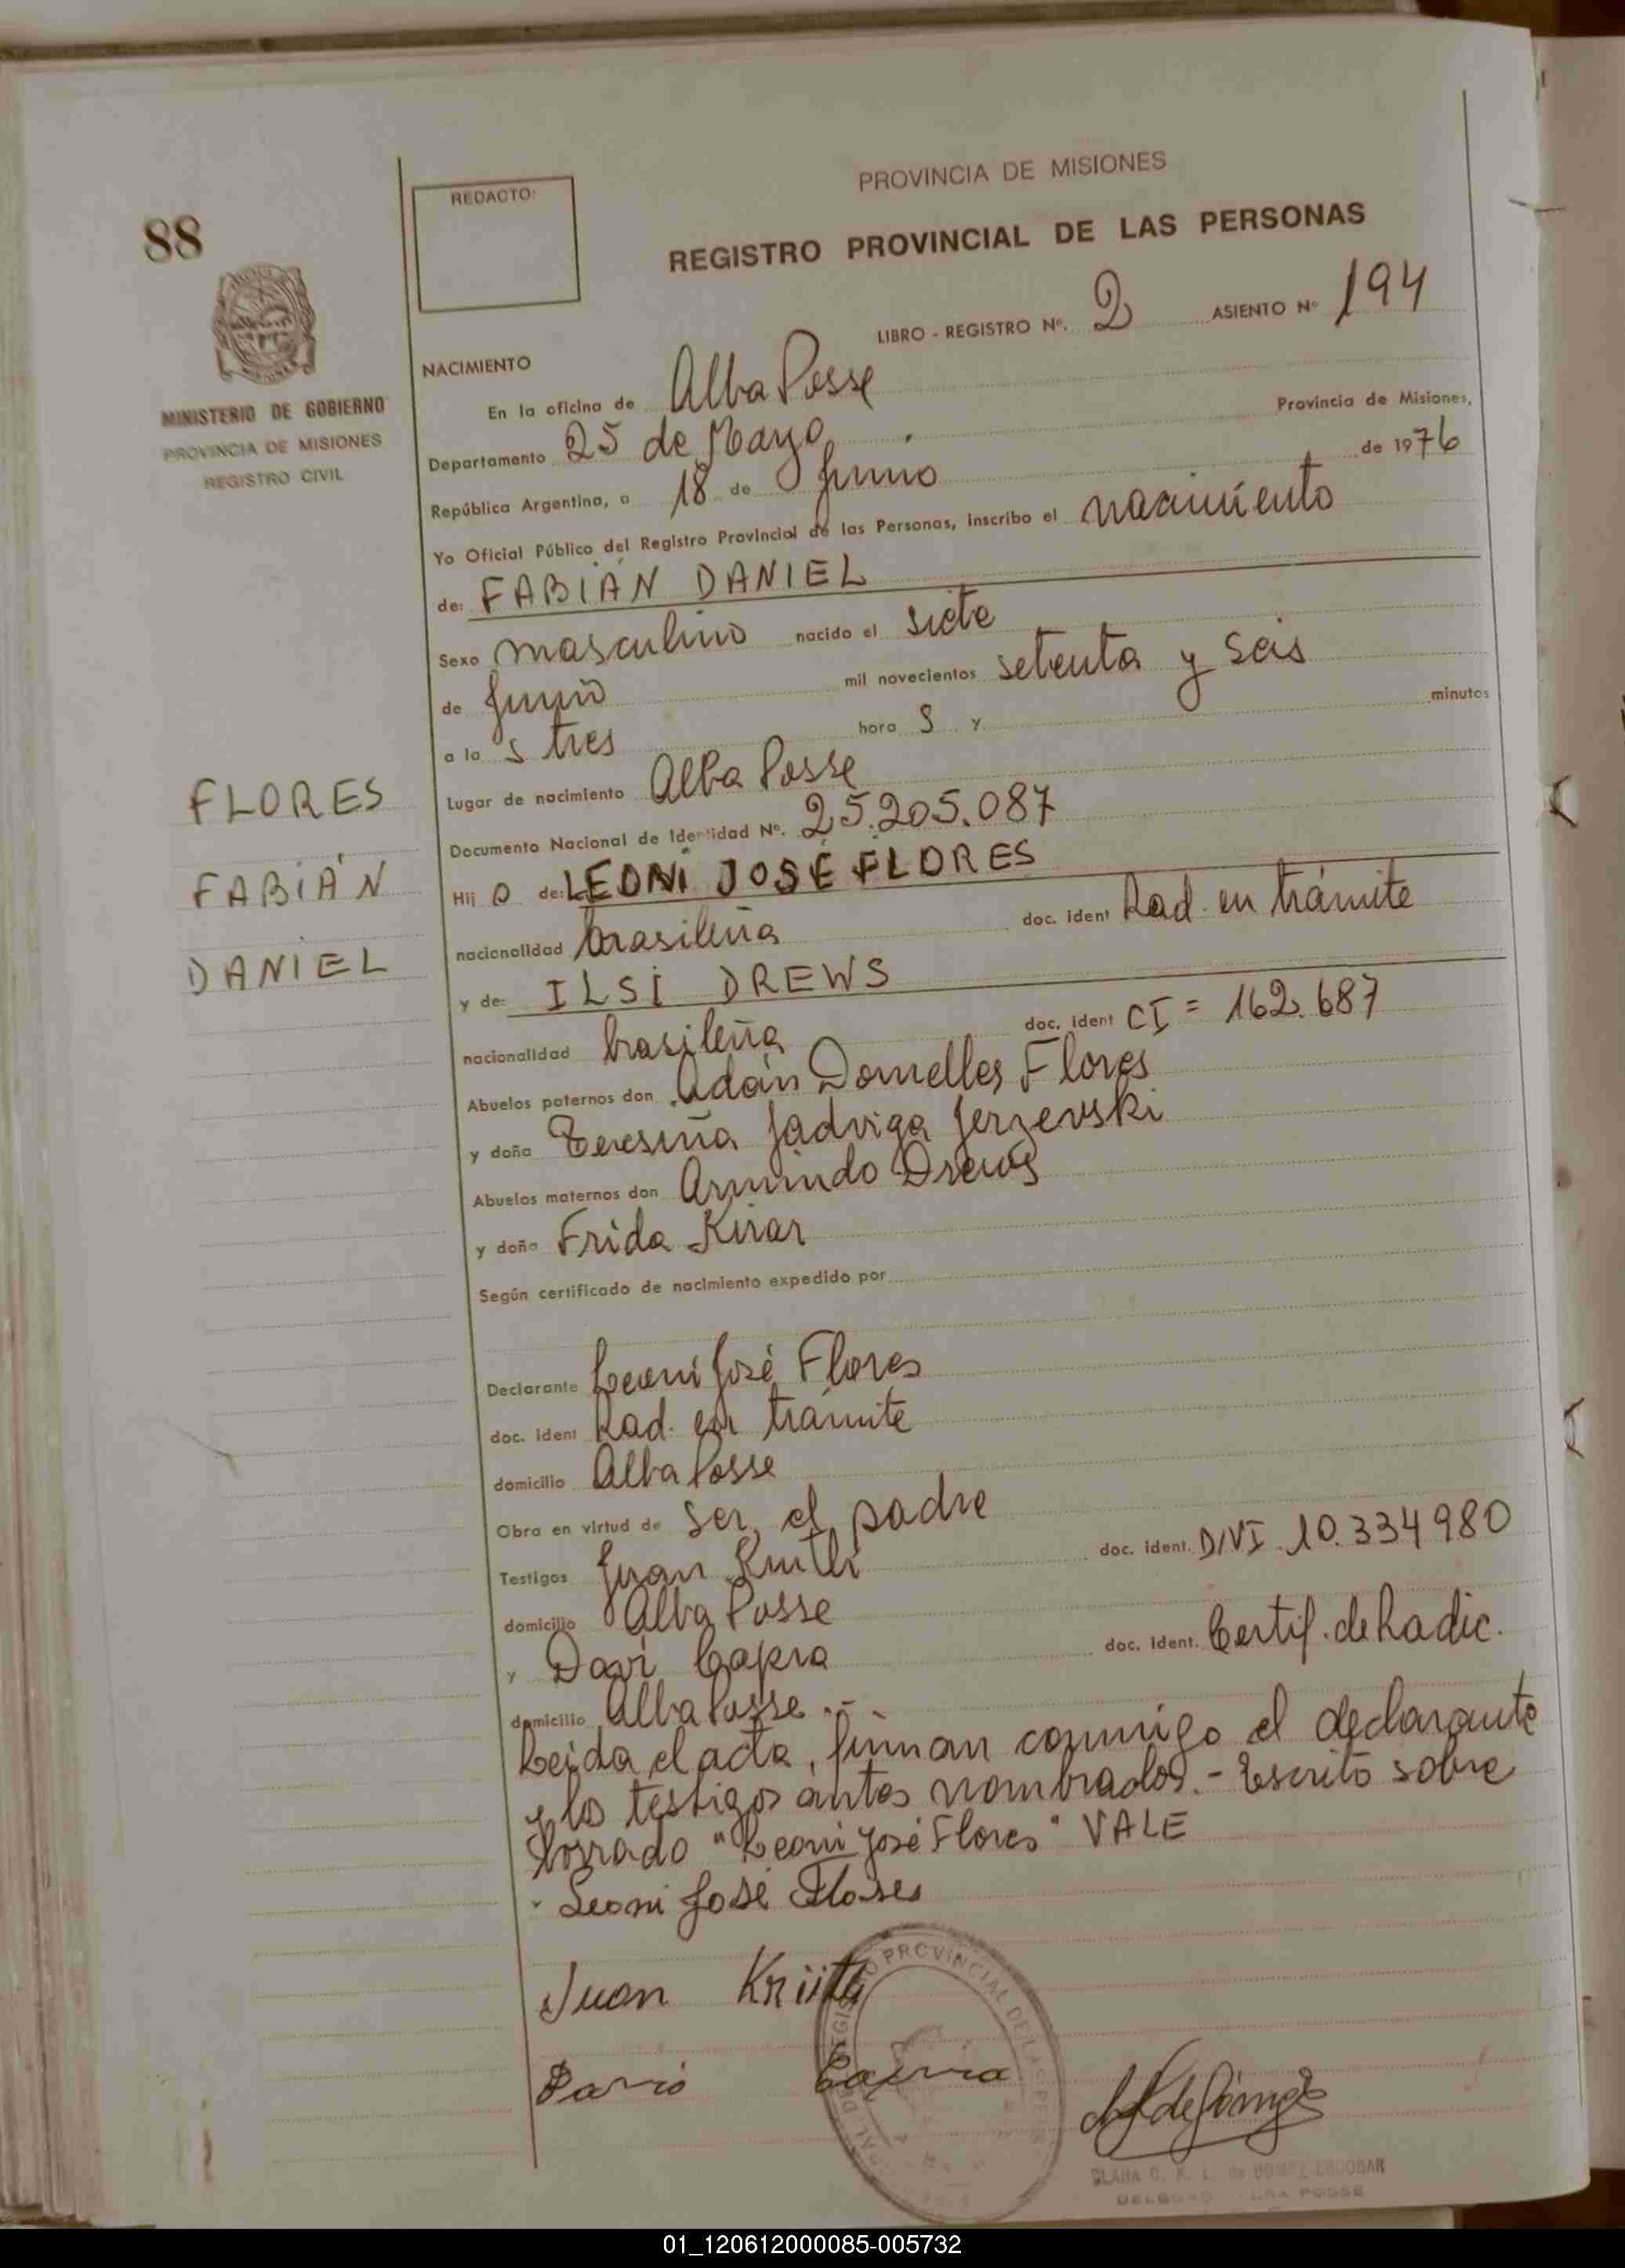 88
MINISTERIO DE GOBIERNO
PROVINCIA DE MISIONES
REGISTRO CIVIL
REDACTO:
PROVINCIA DE MISIONES
REGISTRO PROVINCIAL DE LAS PERSONAS
LIBRO - REGISTRO Nº. 2 ASIENTO Nº 194
NACIMIENTO
En la oficina de Alba Posse
Provincia de Misiones,
Departamento 25 de Mayo
República Argentina, a 18 de Junio de 1976
Yo Oficial Público del Registro Provincial de las Personas, inscribo el nacimiento
de: FABIÁN DANIEL
Sexo masculino nacido el siete
de Junio mil novecientos setenta y seis
a la s tres hora s y minutos
Lugar de nacimiento Alba Posse
Documento Nacional de Identidad Nº. 25.205.087
Hij o de: LEONI JOSÉ FLORES
nacionalidad brasileña doc. ident Rad. en trámite
y de: ILSI DREWS
nacionalidad brasileña doc. ident CI = 162.687
Abuelos paternos don Adán Dornelles Flores
y doña Teresiña Jadviga Jerzevski
Abuelos maternos don Armindo Drews
y doña Frida Kirar
Según certificado de nacimiento expedido por
Declarante Leoni José Flores
doc. ident Rad. en trámite
domicilio Alba Posse
Obra en virtud de ser el padre
Testigos Juan doc. ident. DNI 10.334.980
domicilio Alba Posse
y Davi doc. ident. Certif. de Radic.
domicilio Alba Posse.-
Leida el acta, firman conmigo el declarante
y los testigos antes nombrados.- Escrito sobre
borrado "Leoni José Flores" VALE
Leoni José Flores
Juan
REGISTRO PROVINCIAL DE LAS PERS
DELEGAD ALBA POSSE
FLORES
FABIÁN
DANIEL
01_120612000085-005732